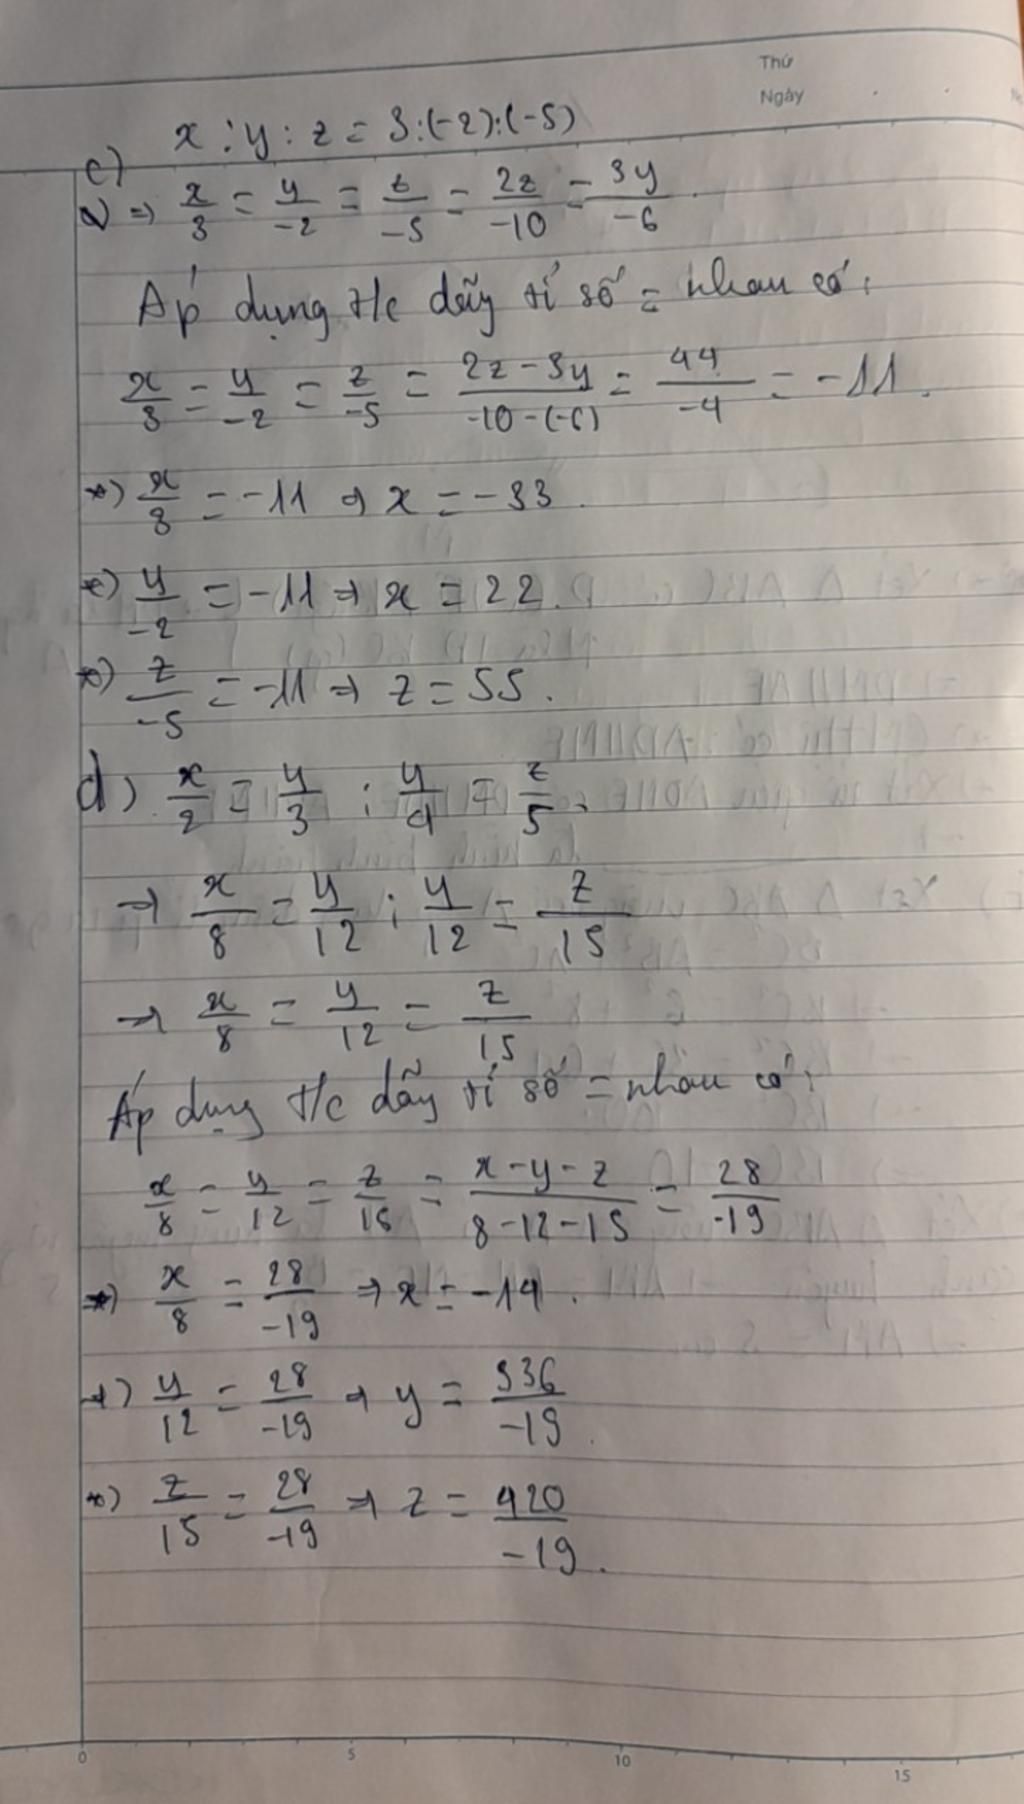 Thứ
Ngày
c) x : y : z = 3:(-2):(-5)
=> x/3 = y/-2 = z/-5 = 2z/-10 = 3y/-6
Áp dụng t/c dãy tỉ số = nhau có:
x/3 = y/-2 = z/-5 = 2z-3y/-10-(-6) = 44/-4 = -11.
*) x/3 = -11 => x = -33.
*) y/-2 = -11 => x = 22.
*) z/-5 = -11 => z = 55.
d) x/2 = y/3 ; y/4 = z/5.
=> x/8 = y/12 ; y/12 = z/15
=> x/8 = y/12 = z/15
Áp dụng t/c dãy tỉ số = nhau có:
x/8 = y/12 = z/15 = x-y-z/8-12-15 = 28/-19
*) x/8 = 28/-19 => x = -14.
*) y/12 = 28/-19 => y = 336/-19.
*) z/15 = 28/-19 => z = 420/-19.
0 5 10 15